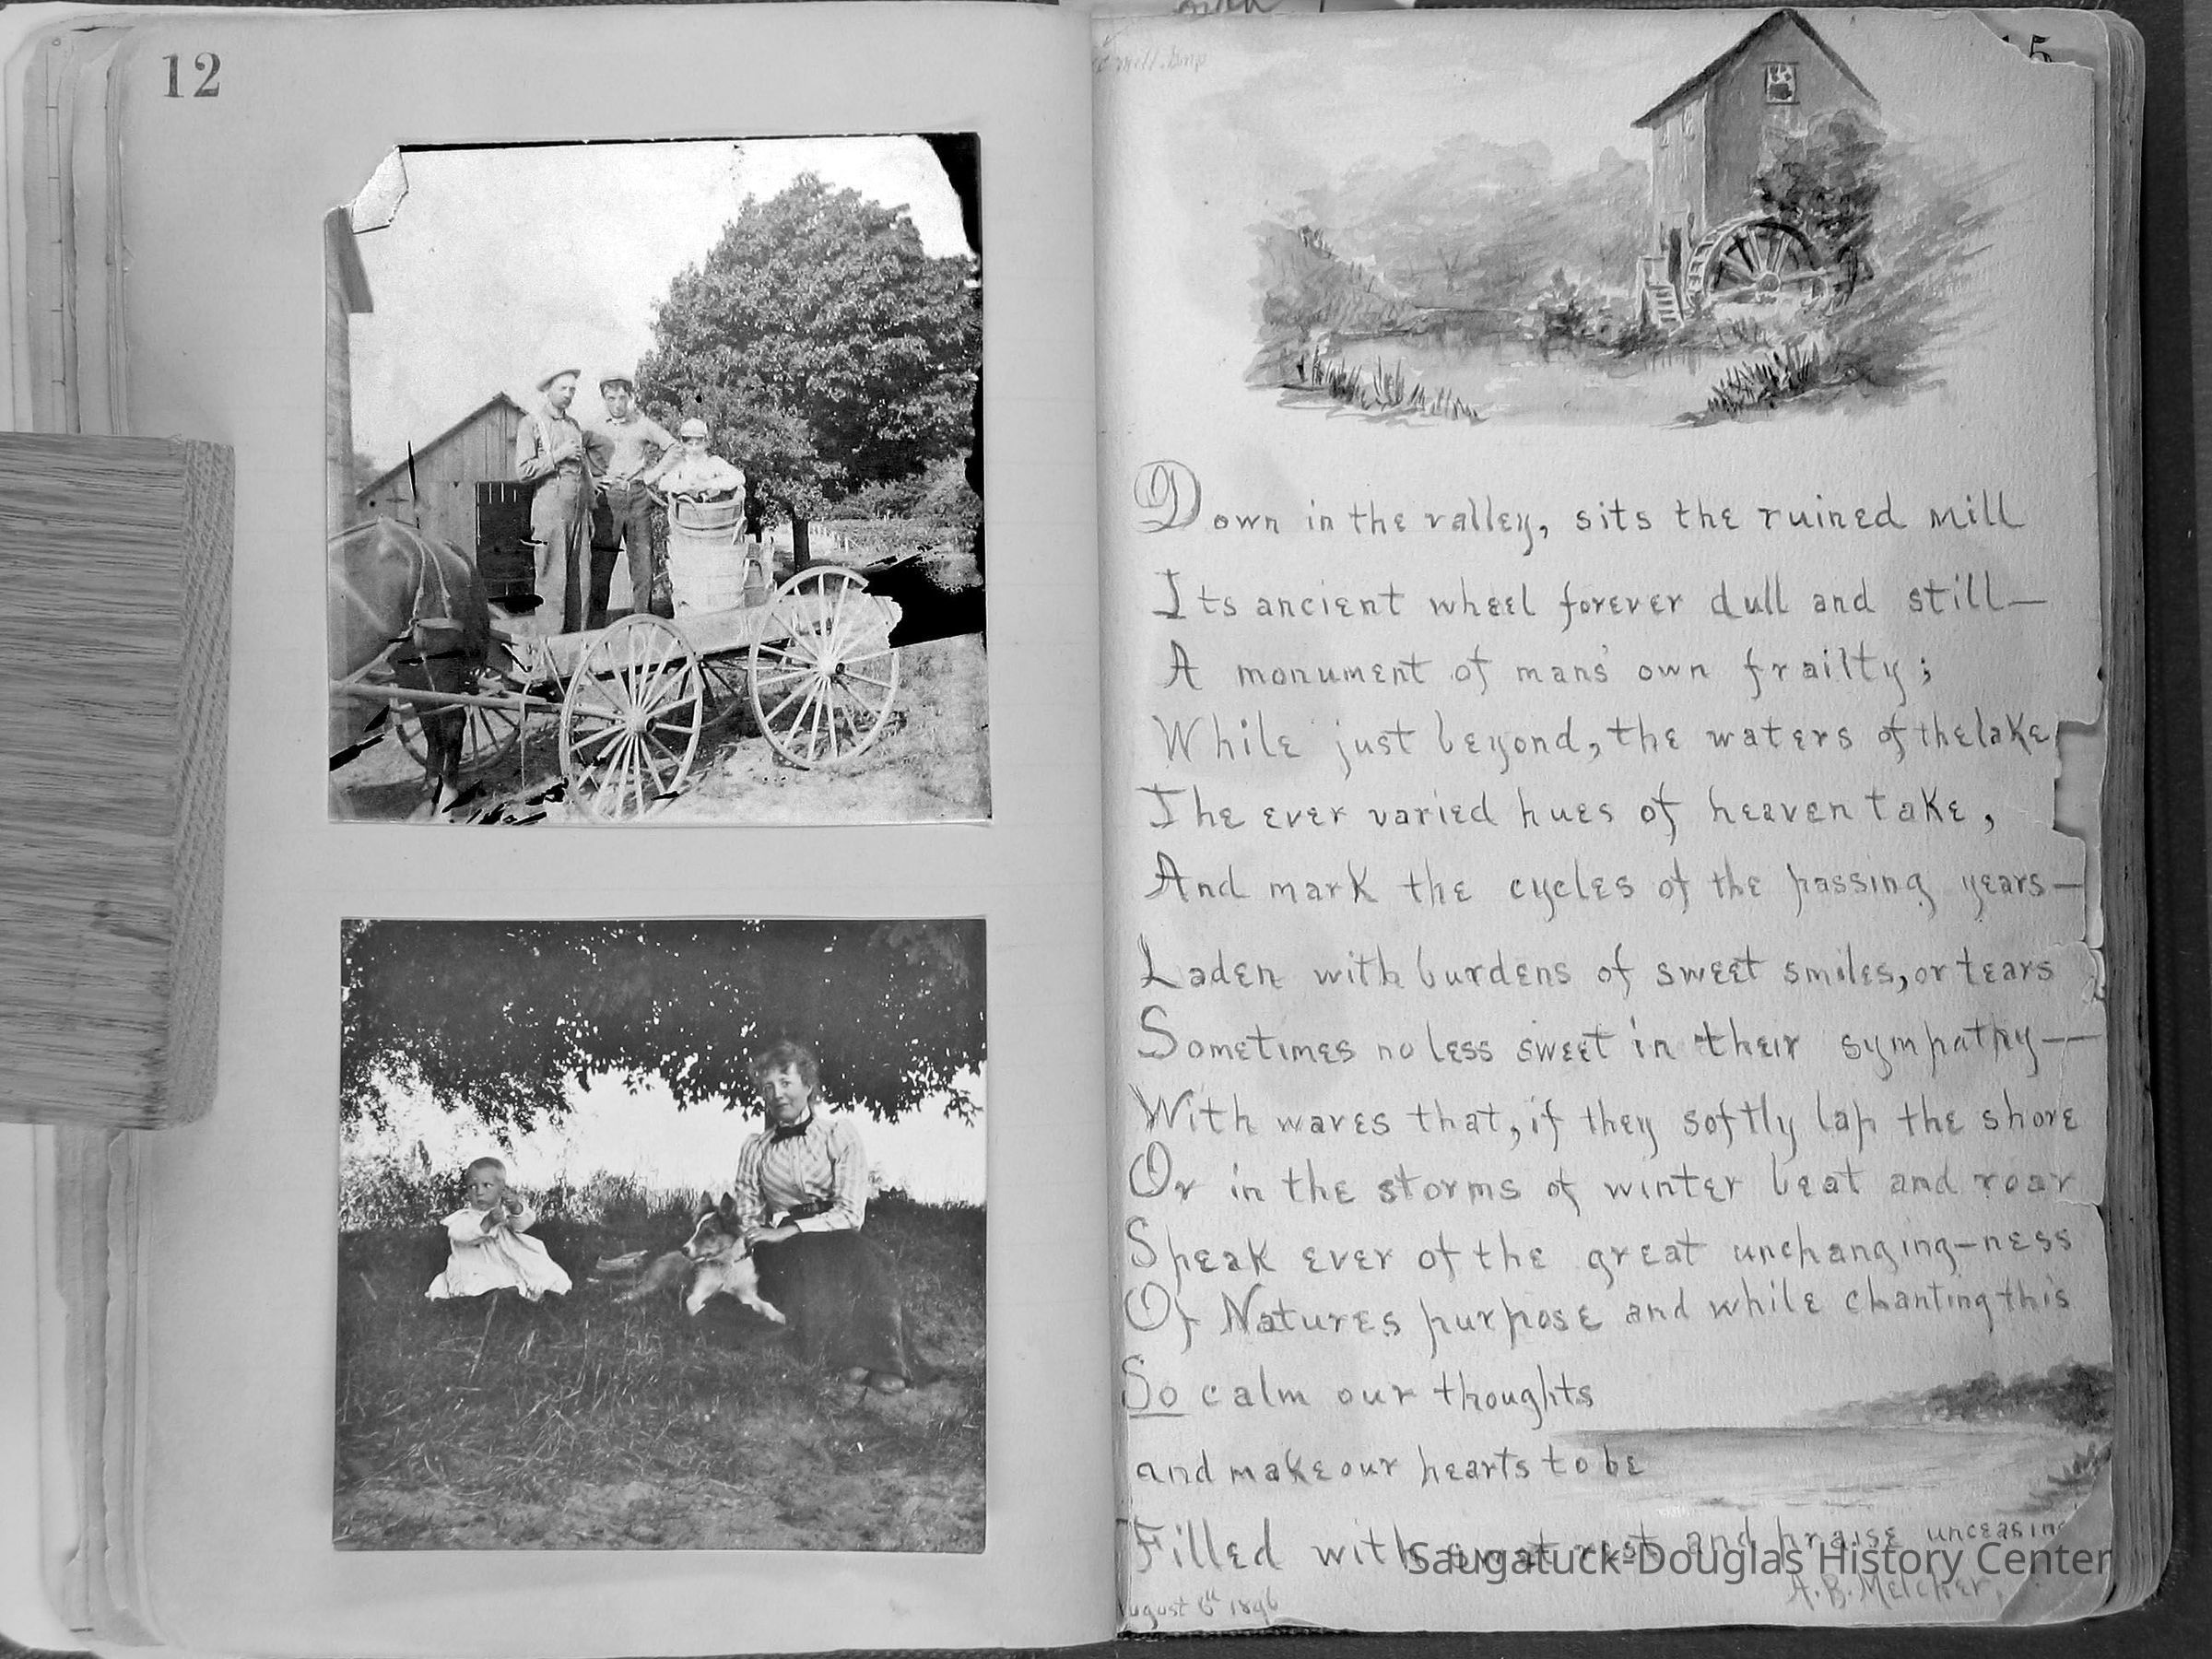 12
5
Down in the valley, sits the ruined mill
Its ancient wheel forever dull and still—
A monument of mans' own frailty;
While just beyond, the waters of the lake,
The ever varied hues of heaven take,
And mark the cycles of the passing years—
Laden with burdens of sweet smiles, or tears
Sometimes no less sweet in their sympathy—
With waves that, if they softly lap the shore
Or in the storms of winter beat and roar
Speak ever of the great unchanging-ness
Of Natures purpose and while chanting this
So calm our thoughts
and make our hearts to be
Filled with sweet rest and praise unceasing
Saugatuck-Douglas History Center
A.B. Melcher,
August 6th 1896